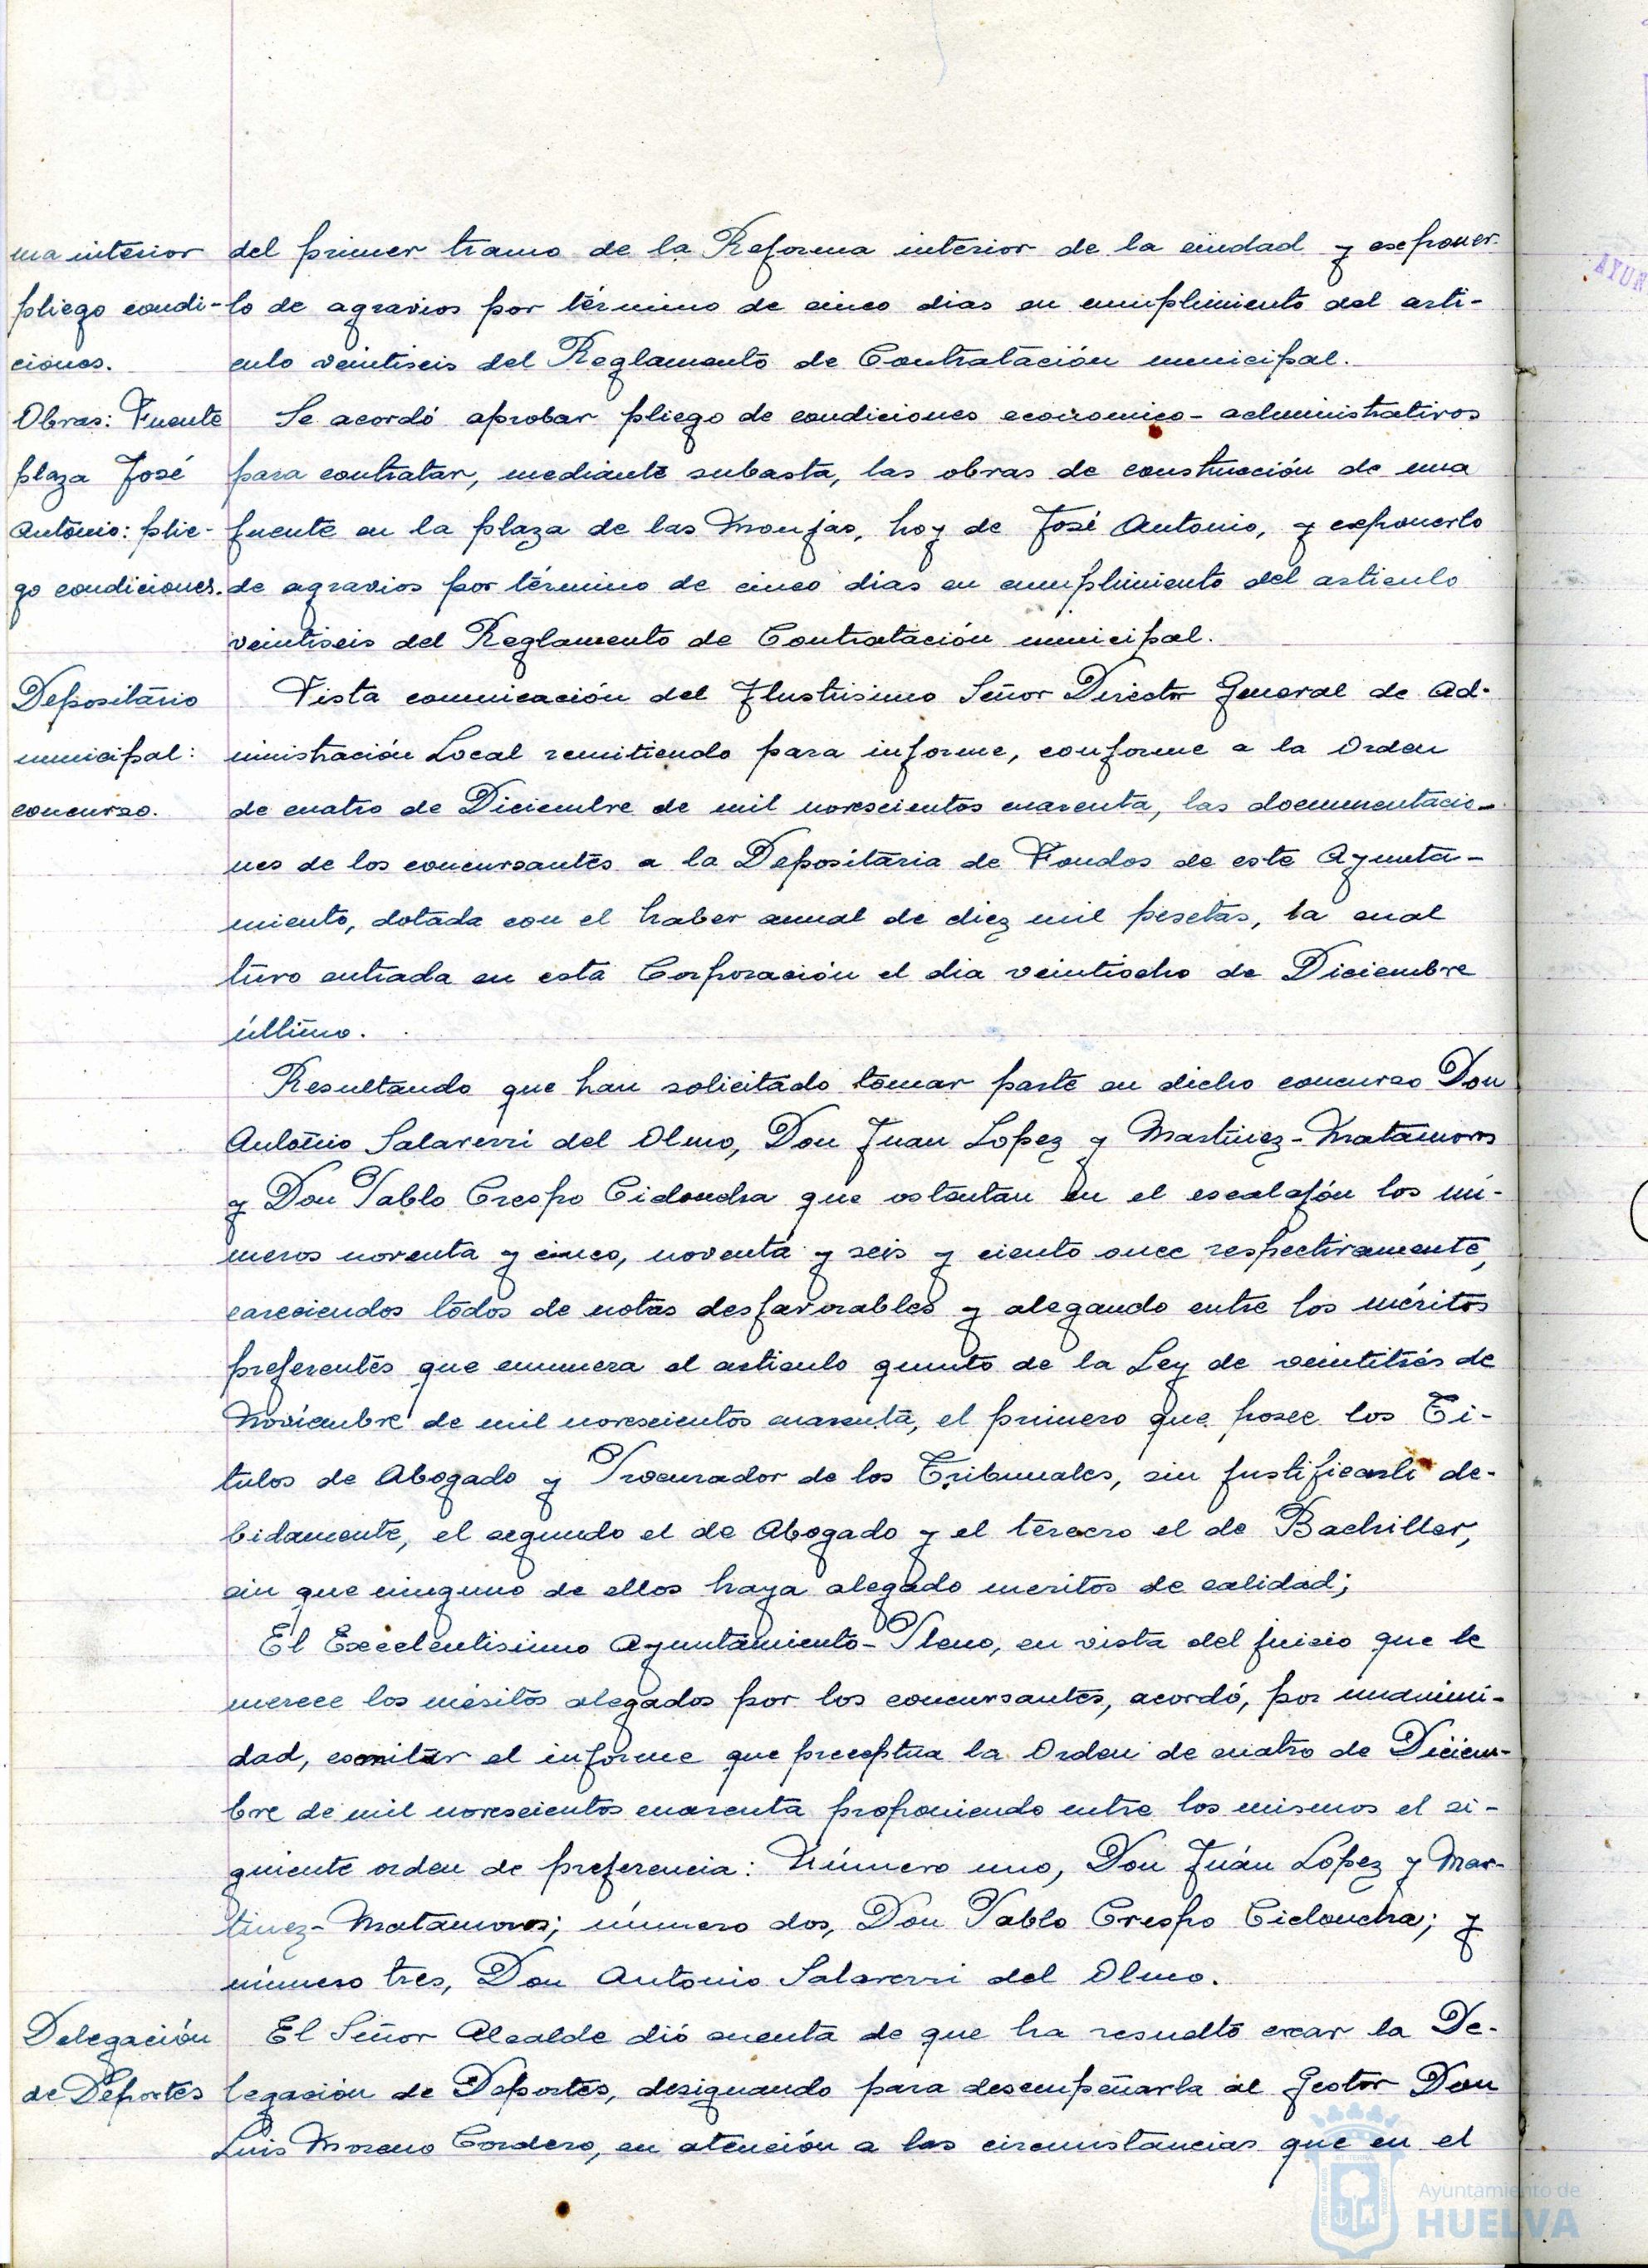 ma interior
pliego condi-
ciones.
del primer tramo de la Reforma interior de la ciudad y exponer-
lo de agravios por término de cinco dias en cumplimiento del arti-
culo veintiseis del Reglamento de Contratación municipal.
Obras: Fuente
plaza José
Antonio: plie-
go condiciones.
Se acordó aprobar pliego de condiciones economico-administrativos
para contratar, mediante subasta, las obras de construcción de una
fuente en la plaza de las Monjas, hoy de José Antonio, y exponerlo
de agravios por término de cinco dias en cumplimiento del articulo
veintiseis del Reglamento de Contratación municipal.
Depositario
municipal:
concurso.
Vista comunicación del Ilustrisimo Señor Director General de Ad-
ministración Local remitiendo para informe, conforme a la Orden
de cuatro de Diciembre de mil novescientos cuarenta, las documentacio-
nes de los concursantes a la Depositaria de Fondos de este Ayunta-
miento, dotada con el haber anual de diez mil pesetas, la cual
tuvo entrada en esta Corporación el dia veintiocho de Diciembre
último.
Resultando que han solicitado tomar parte en dicho concurso Don
Antonio Salaverri del Olmo, Don Juan Lopez y Martinez-Matamoros
y Don Pablo Crespo Cidoncha que ostentan en el escalafón los nú-
meros noventa y cinco, noventa y seis y ciento once respectivamente,
careciendos todos de notas desfavorables y alegando entre los méritos
preferentes que enumera el articulo quinto de la Ley de veintitrés de
Noviembre de mil novescientos cuarenta, el primero que posee los Ti-
tulos de Abogado y Procurador de los Tribunales, sin justificarlo de-
bidamente, el segundo el de Abogado y el tercero el de Bachiller,
sin que ninguno de ellos haya alegado meritos de calidad;
El Excelentisimo Ayuntamiento-Pleno, en vista del juicio que le
merece los méritos alegados por los concursantes, acordó, por unanimi-
dad, emitir el informe que preceptua la Orden de cuatro de Diciem-
bre de mil novescientos cuarenta proponiendo entre los mismos el si-
guiente orden de preferencia: Número uno, Don Juán Lopez y Mar-
tinez-Matamoros; número dos, Don Pablo Crespo Cidoncha; y
número tres, Don Antonio Salaverri del Olmo.
Delegación
de Deportes
El Señor Alcalde dió cuenta de que ha resuelto crear la De-
legación de Deportes, designando para desempeñarla al Gestor Don
Luis Moreno Cordero, en atención a las circunstancias que en el
AYUN
Ayuntamiento de
HUELVA